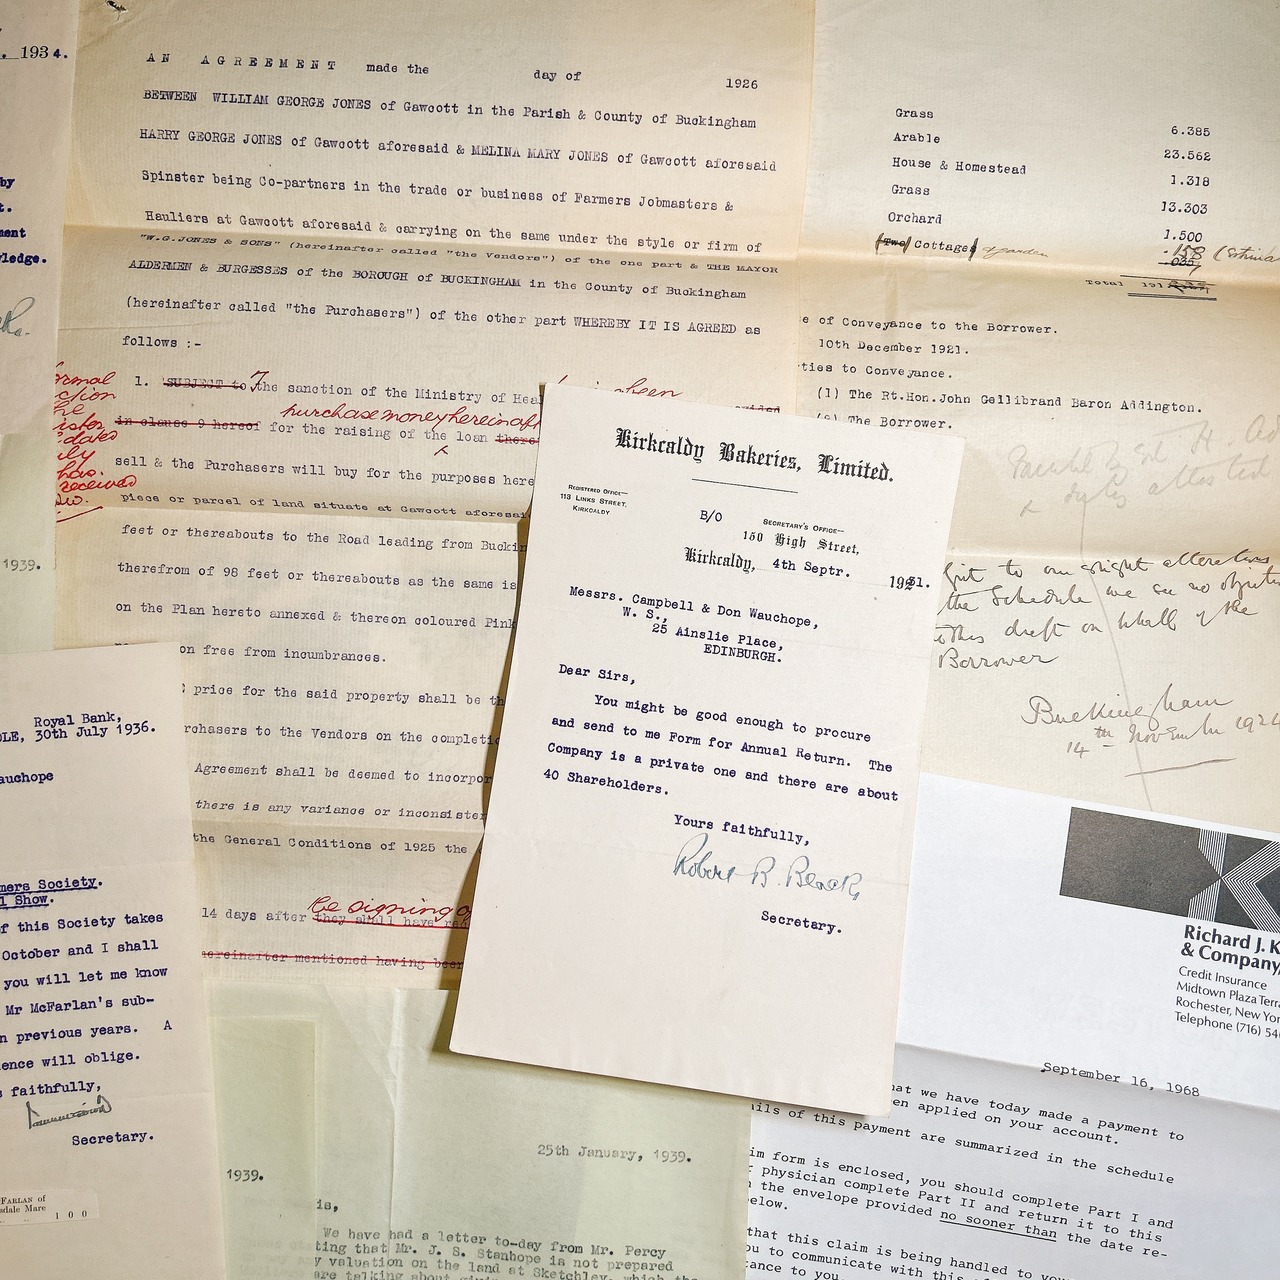 1934.
by
t.
ment
ledge.
1939.
AN AGREEMENT made the day of 1926
BETWEEN WILLIAM GEORGE JONES of Gawcott in the Parish & County of Buckingham
HARRY GEORGE JONES of Gawcott aforesaid & MELINA MARY JONES of Gawcott aforesaid
Spinster being Co-partners in the trade or business of Farmers Jobmasters &
Hauliers at Gawcott aforesaid & carrying on the same under the style or firm of
"W.G.JONES & SONS" (hereinafter called "the Vendors") of the one part & THE MAYOR
ALDERMEN & BURGESSES of the BOROUGH of BUCKINGHAM in the County of Buckingham
(hereinafter called "the Purchasers") of the other part WHEREBY IT IS AGREED as
follows :-
1. SUBJECT to the sanction of the Ministry of Hea
purchase money hereinaft
in clause 9 hereof for the raising of the loan
sell & the Purchasers will buy for the purposes here
piece or parcel of land situate at Gawcott aforesai
feet or thereabouts to the Road leading from Buckin
therefrom of 98 feet or thereabouts as the same is
on the Plan hereto annexed & thereon coloured Pink
on free from incumbrances.
price for the said property shall be th
rchasers to the Vendors on the completi
Agreement shall be deemed to incorpor
there is any variance or inconsister
the General Conditions of 1925 the
the signing of
14 days after they shall have rec
hereinafter mentioned having been
received
Grass 6.385
Arable 23.562
House & Homestead 1.318
Grass 13.303
Orchard 1.500
(Two) Cottages & garden .158
.035
Total
e of Conveyance to the Borrower.
10th December 1921.
ties to Conveyance.
(1) The Rt.Hon.John Gellibrand Baron Addington.
The Borrower.
to our slight alterations
the Schedule we see no objection
to this draft on behalf of the
Borrower
Buckingham
14th November 192
Kirkcaldy Bakeries, Limited.
Registered Office—
113 Links Street,
Kirkcaldy
B/O
Secretary's Office—
150 High Street,
Kirkcaldy, 4th Septr. 1931.
Messrs. Campbell & Don Wauchope,
W. S.,
25 Ainslie Place,
EDINBURGH.
Dear Sirs,
You might be good enough to procure
and send to me Form for Annual Return. The
Company is a private one and there are about
40 Shareholders.
Yours faithfully,
Robert B. Black
Secretary.
Royal Bank,
OLE, 30th July 1936.
auchope
mers Society.
l Show.
f this Society takes
October and I shall
you will let me know
Mr McFarlan's sub-
n previous years. A
ence will oblige.
s faithfully,
Secretary.
Farlan of
sdale Mare
100
25th January, 1939.
1939.
is,
We have had a letter to-day from Mr. Percy
ting that Mr. J. S. Stanhope is not prepared
y valuation on the land at Sketchley, which the
are talking about
Richard J. K
& Company,
Credit Insurance
Midtown Plaza Terra
Rochester, New York
Telephone (716) 54
September 16, 1968
hat we have today made a payment to
en applied on your account.
ails of this payment are summarized in the schedule
im form is enclosed, you should complete Part I and
r physician complete Part II and return it to this
n the envelope provided no sooner than the date re-
elow.
that this claim is being handled to you
ou to communicate with this
tance to you.